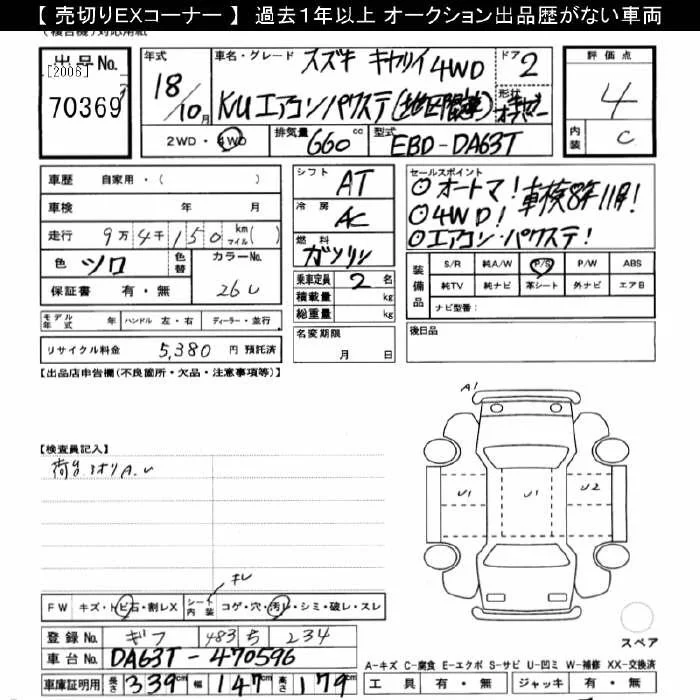 【 売切りEXコーナー 】 過去1年以上 オークション出品歴がない車両
出品No.
[2006]
70369
年式
18/10月
車名・グレード
スズキ キャリイ 4WD
KUエアコンパワステ
ドア
2
形状
評価点
4
内装
C
2WD・4WD
排気量
660 cc
型式
EBD-DA63T
車歴 自家用・( )
車検 年 月
走行 9万4千150 km マイル( )
色 シロ
色替
カラーNo.
26U
保証書 有・無
モデル年式 年
ハンドル 左・右
ディーラー・並行
リサイクル料金 5,380 円 預託済
シフト
AT
冷房
AC
燃料
ガソリン
乗車定員 2 名
積載量 kg
総重量 kg
名変期限
月 日
セールスポイント
◎オートマ! 車検8年11月!
◎4WD!
◎エアコン・パワステ!
装備品
S/R 純A/W P/S P/W ABS
純TV 純ナビ 革シート 外ナビ エアB
ナビ型番:
後日品
【出品店申告欄(不良箇所・欠品・注意事項等)】
【検査員記入】
荷台 A.U
A1
U1 U1 U2
キレ
FW キズ・トビ石・割レX
シート内装 コゲ・穴・汚レ・シミ・破レ・スレ
登録No. ギフ 483 ち 234
車台No. DA63T-470596
車庫証明用 長さ 339cm 幅 147cm 高さ 179cm
スペア
A-キズ C-腐食 E-エクボ S-サビ U-凹ミ W-補修 XX-交換済
工具 有・無 ジャッキ 有・無